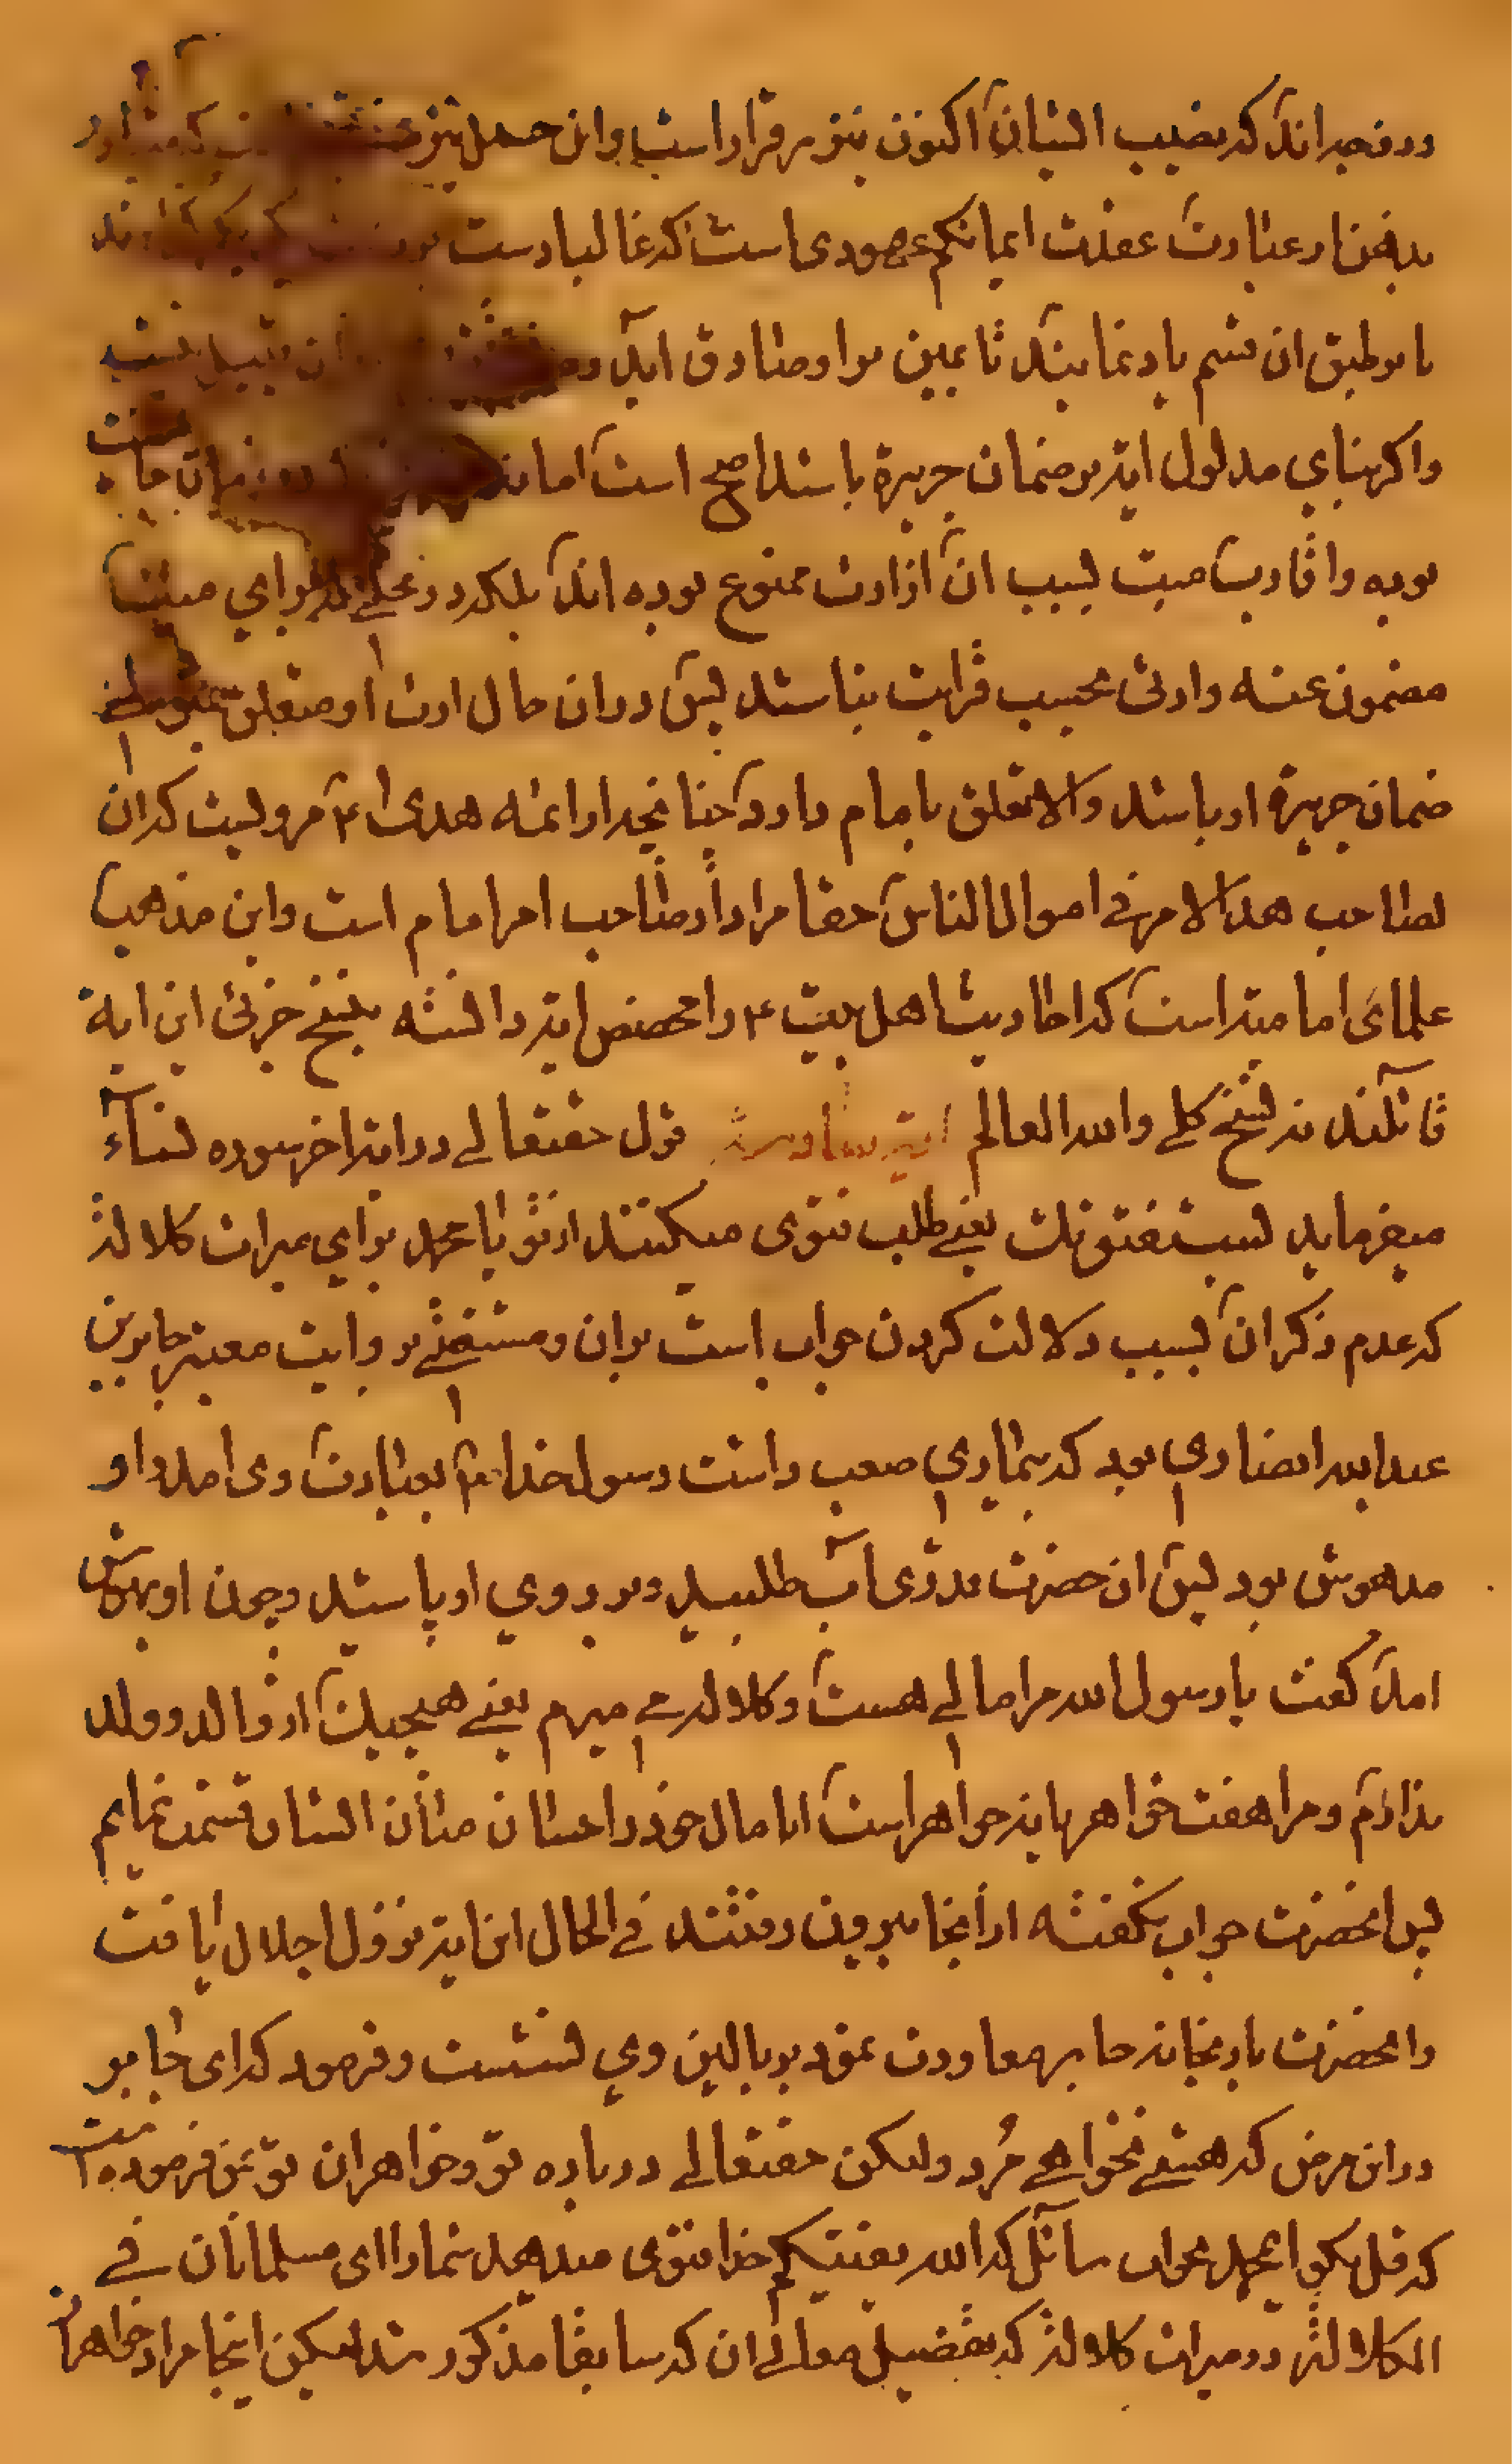 ورفته‌اند که نصیب ایشان اکنون نیز برقرار است و این حمل نیز
بدهند و عبارت عقدت ایمانکم عهودی است که غالبا دست بر
یا بر طبق ان قسم یاد نمایند تا یمین بر او صادق اید و ان قبیل
واکر بنای مدلول ایه بر ضمان جریره باشد اصح است اما در زمان
بوده واقارب میت بسبب ان از ارث ممنوع بوده اند بلکه در محلی که برای
مضمون عنه وارثی بحسب قرابت نباشد پس در ان حال ارث او متعلق
ضمان جریره او باشد والا تعلق بامام دارد چنانچه از ائمه هدی ع مرویست که ان
لصاحب هذا الامر فی اموال الناس حقا مراد از صاحب امر امام است و این مذهب
علمای امامیه است که احادیث اهل بیت ع را مخصص ایه دانسته بنسخ جزئی این ایة
قائلند نه نسخ کلی والله العالم ایه سادسه قول حقتعالی در ایه اخر سوره نساء
میفرماید یستفتونک یعنی طلب فتوی میکنند از تو یا محمد برای میراث کلاله
که عدم ذکر ان بسبب دلالت کردن جواب است بران ومستفتی بروایت معتبر جابر بن
عبدالله انصاری بود که بیماری صعب داشت رسول خدا ص بعیادت وی امد و او
مدهوش بود پس ان حضرت قدری اب طلبید و بر روی او پاشید و چون او بهوش
امد کفت یا رسول الله مرا مالی هست و کلاله می میرم یعنی هیچیک از والد و ولد
ندارم و مرا هفت خواهر یا نه خواهر است ایا مال خود را چسان میان ایشان قسمت نمایم
پس انحضرت جواب نکفته از انجا بیرون رفتند فی الحال این ایه نزول اجلال یافت
وانحضرت باز بخانه جابر معاودت نمود بر بالین وی نشست و فرمود که ای جابر
در این مرض که هستی نخواهی مُرد ولیکن حقتعالی درباره تو و خواهران تو بمن فرموده است
که قل بکو ای محمد بجواب سائل که الله یفتیکم خدا فتوی میدهد شما را ای مسلمانان فی
الکلالة در میراث کلاله که تفصیل معانی ان که سابقا مذکور شد لیکن اینجا مراد خواهران